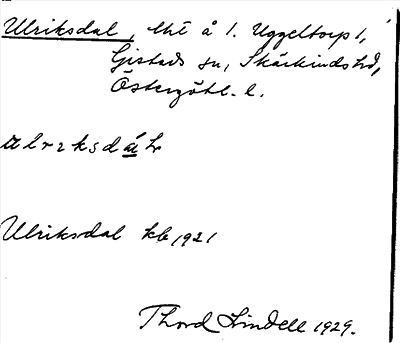 Ulriksdal, lht å 1. Uggeltorp 1,
Gistads sn, Skärkinds hd,
Östergötl. l.
Ulriksdal kb 1921
Thord Lindell 1929.